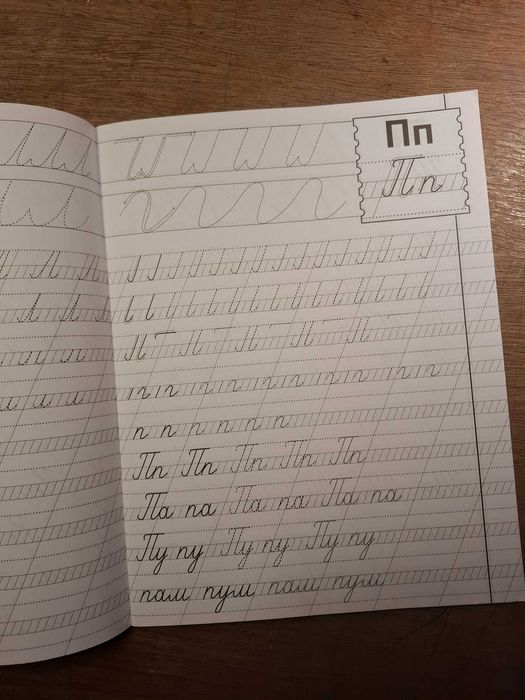 Пп
Пп
п п п п п п
Пп Пп Пп Пп Пп
Па па Па па Па па
Пу пу Пу пу Пу пу
пам пум пам пум